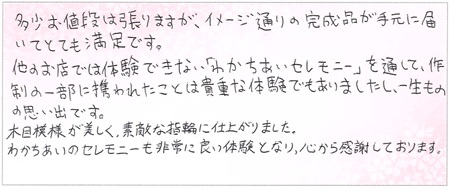 多少お値段は張りますが、イメージ通りの完成品が手元に届
いてとても満足です。
他のお店では体験できない「わかちあいセレモニー」を通して、作
制の一部に携われたことは貴重な体験でもありましたし、一生もの
の思い出です。
木目模様が美しく、素敵な指輪に仕上がりました。
わかちあいのセレモニーも非常に良い体験となり、心から感謝しております。